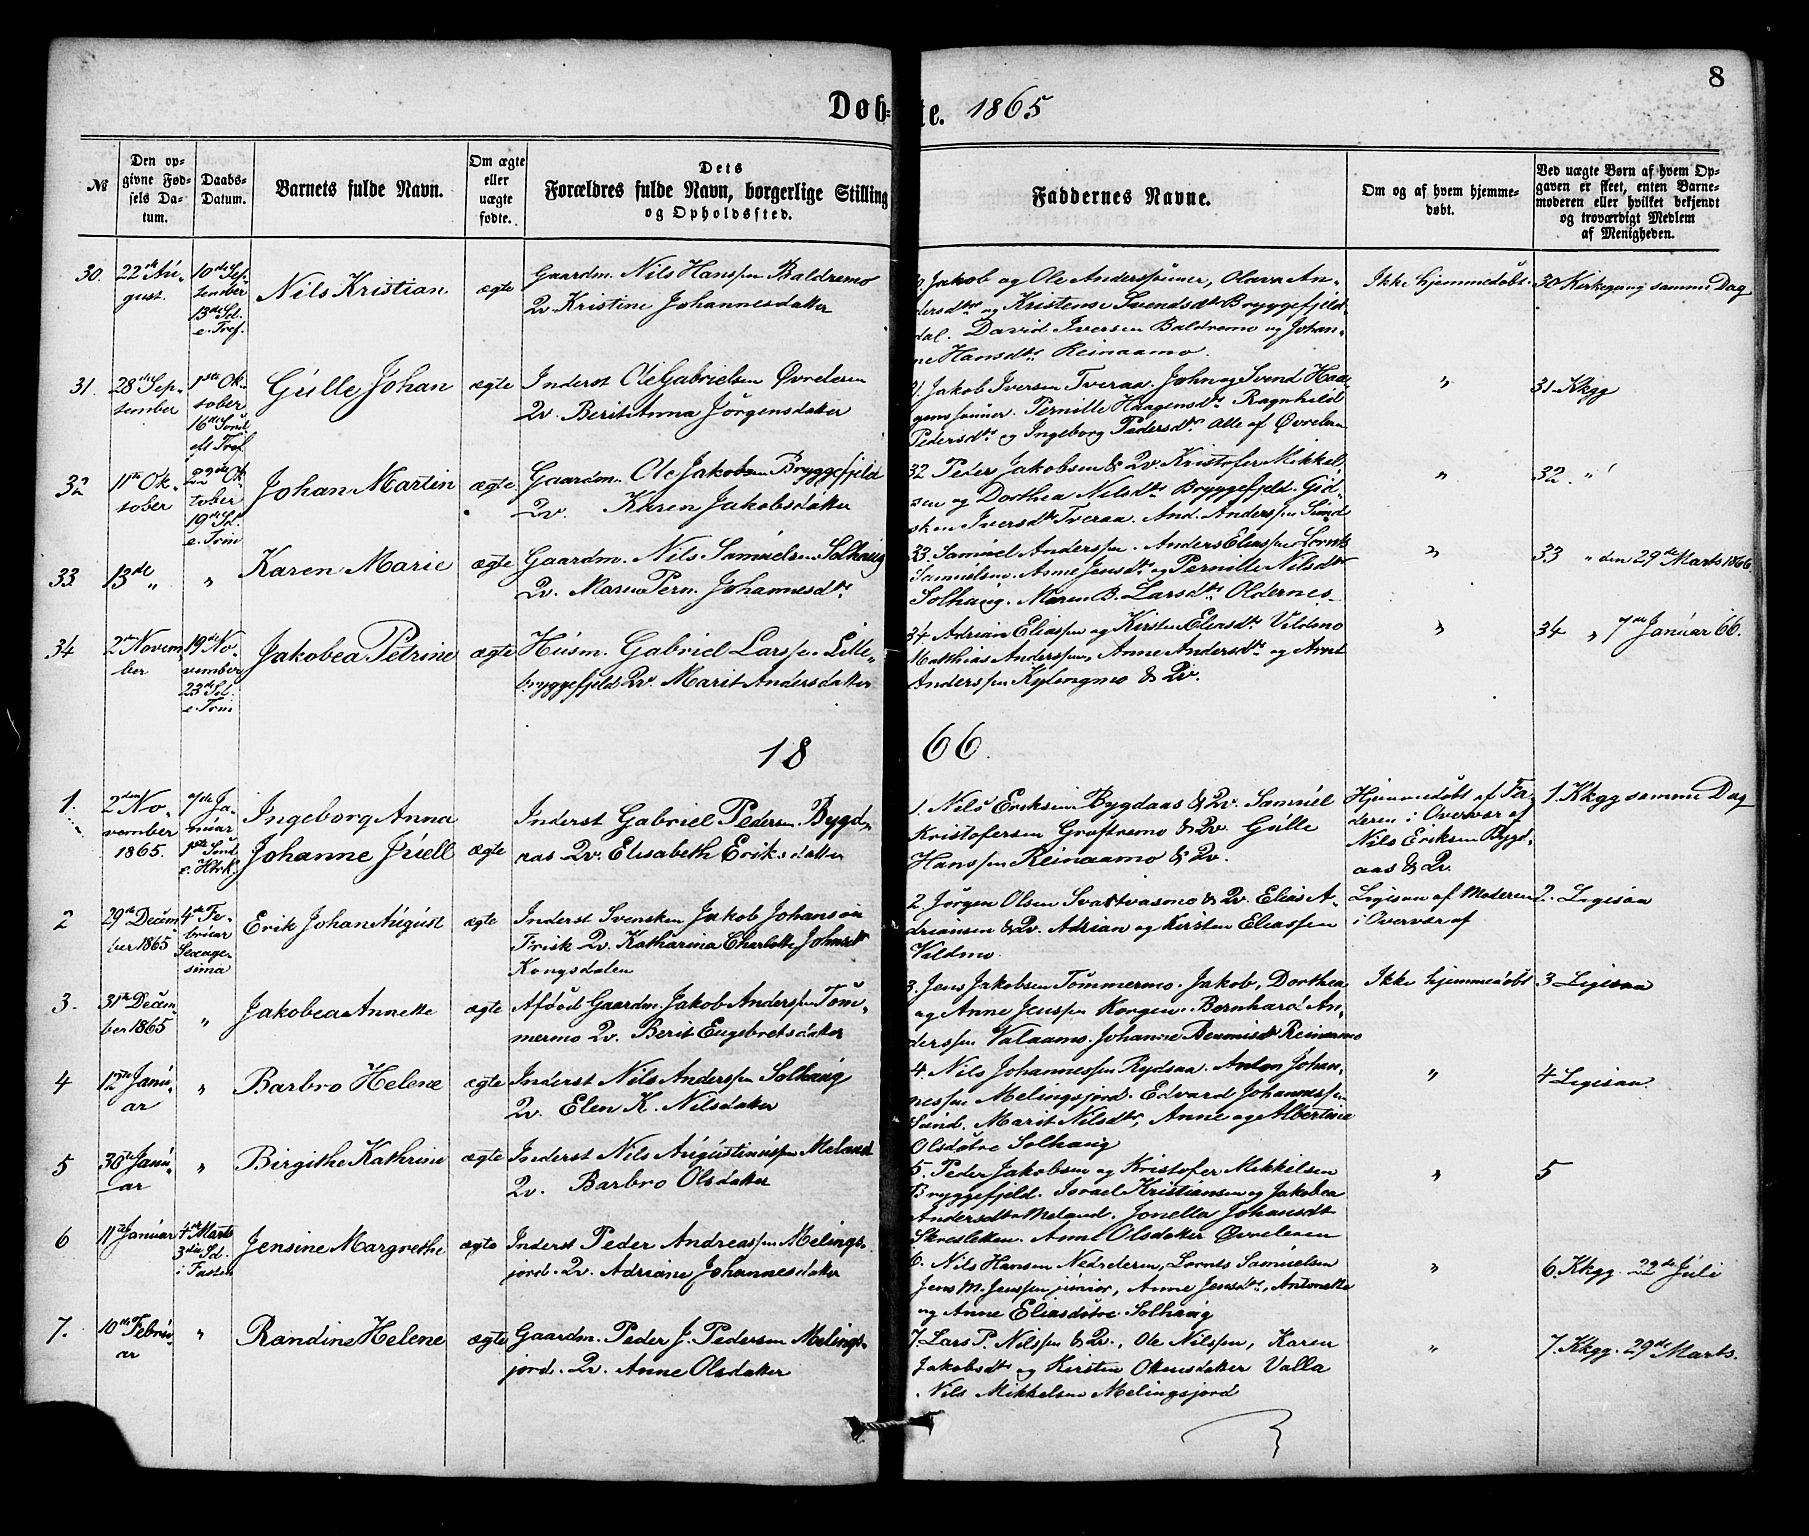 8
Døb=te. 1865
№
Den op-
givne Fød-
sels Da-
tum.
Daabs-
Datum.
Barnets fulde Navn.
Om ægte
eller
uægte
fødte.
Dets
Forældres fulde Navn, borgerlige Stilling
og Opholdssted.
Faddernes Navne.
Om og af hvem hjemme-
døbt.
Ved uægte Børn af hvem Op-
gaven er skeet, enten Barne-
moderen eller hvilket bekjendt
og troværdigt Medlem
af Menigheden.
30.
22de Au-
gust.
10de Sep-
tember
13de Sd.
e. Tref.
Nils Kristian
ægte
Gaardm. Nils Hanssen Baldremo
Qv Kristine Johannesdatter
Jakob og Ole Anderssønner, Olava An-
dersdtr og Kristense Svendsdtr Bryggefjeld-
dal. David Iversen Baldremo og Johan-
ne Hansdtr Reinaamo.
Ikke hjemmedøbt
30 Kirkegang samme Dag
31.
28de Sep-
tember
1ste Ok-
tober
16de Sønd.
eft Tref
Gulle Johan
ægte
Inderst Ole Gabrielsen Øvreleren
Qv. Berit Anna Jørgensdatter
31 Jakob Iversen Tveraa. John og Svend Haa-
genssønner. Pernille Haagensdtr Ragnhild
Pedersdtr og Ingeborg Pedersdtr Alle af Øvreleren
"
31. Kkgg
32
11te Ok-
tober
22de Ok-
tober
19de Sd.
e. Trin
Johan Martin
ægte
Gaardm. Ole Jakobsen Bryggefjeld
Qv. Karen Jakobsdatter
32 Peder Jakobsen & Qv. Kristofer Mikkel-
sen og Dorthea Nilsdtr Bryggefjeld. Gid-
sken Iversdtr Tveraa. And. Anderssen Sund
"
32. "
33
13de "
"
Karen Marie
ægte
Gaardm. Nils Samuelsen Solhaug
Qv. Maren Pern. Johannesdtr
33 Samuel Anderssen. Anders Eliassen Lornts
Samuelsen. Anne Jensdtr og Pernille Nilsdtr
Solhaug. Maren B. Larsdtr Oldernes
"
33 " den 29de Marts 1866.
34
2den Novem-
ber
19de No-
vember
23de Sd.
e. Trin
Jakobea Petrine
ægte
Husm. Gabriel Larssen Lille-
bryggefjeld Qv. Marit Andersdatter
34 Adrian Eliassen og Kirsten Eliasdtr Vildmo
Matthias Anderssen, Anne Andersdtr og Arnt
Anderssen Kylengmo & Qv.
"
34 " 7de Januar 66.
1866.
1.
2den No-
vember
1865.
7de Ja-
nuar
1ste Sønd.
e. H3rK.
Ingeborg Anna
Johanne Juell
ægte
Inderst Gabriel Pedersen Bygd-
aas Qv. Elisabeth Eriksdatter
1. Nils Eriksen Bygdaas & Qv. Samuel
Kristofersen Grøftremo & Qv. Gulle
Hanssen Reinaamo & Qv.
Hjemmedøbt af Fa-
deren i Overvær af
Nils Eriksen Bygd-
aas & Qv.
1. Kkgg samme Dag
2
29de Decem-
ber 1865
4de Fe-
bruar
Sexage-
sima
Erik Johan August
ægte
Inderst Svensken Jakob Johanson
Frisk Qv. Katharina Charlotte Johnsdtr
Kongsdalen
2 Jørgen Olsen Svartvasmo & Qv. Elias A-
driansen & Qv. Adrian og Kirsten Eliassen
Vildmo.
Ligesaa af Moderen
i Overvær af
2. Ligesaa
3.
31te Decem-
ber 1865
"
Jakobea Annette
ægte
Afdød Gaardm. Jakob Anderssen Tøm-
mermo Qv. Berit Engebretsdatter
3. Jens Jakobsen Tømmermo. Jakob, Dorthea
og Anne Jenssen Kongen. Bernhard An-
derssen Valaamo. Johanne Reinaamo
Ikke hjemmedøbt
3 Ligesaa
4
12te Janu-
ar
"
Barbro Helene
ægte
Inderst Nils Anderssen Solhaug
Qv. Elen K. Nilsdatter
4. Nils Johannessen Rydsaa. Anton Johan-
nessen Melingsjord. Edvard Johannessen
Sund. Marit Nilsdtr, Anne og Albertine
Olsdøtre Solhaug
"
4 Ligesaa.
5
30te Janu-
ar
"
Birgithe Kathrine
ægte
Inderst Nils Augustinussen Meland
Qv. Barbro Olsdatter
5. Peder Jakobsen og Kristofer Mikkelsen
Bryggefjeld. Israel Kristiansen og Jakobea
Andersdtr Meland. Jonella Johansdt
Skresletten. Anne Olsdatter Øvreleren
"
5
6
11te Januar
4de Marts
3die Sd.
i Fasten
Jensine Margrethe
ægte
Inderst Peder Andreassen Melings-
jord. Qv. Adriane Johannesdatter
6. Nils Hansen Nedreleren, Lornts Samuelsen
Jens M. Jenssen junior, Anne Jensdtr, Antonette
og Anne Eliasdøtre Solhaug
"
6. Kkgg. 22de Juli
7.
10de Febru-
ar
"
Randine Helene
ægte
Gaardm. Peder J. Pedersen Melings-
jord. Qv. Anne Olsdatter
7. Lars P. Nilssen & Qv., Ole Nilssen, Karen
Jakobsdtr og Kirsten Olsdatter Valla
Nils Mikkelsen Melingsjord
"
7. Kkgg. 29de Marts.